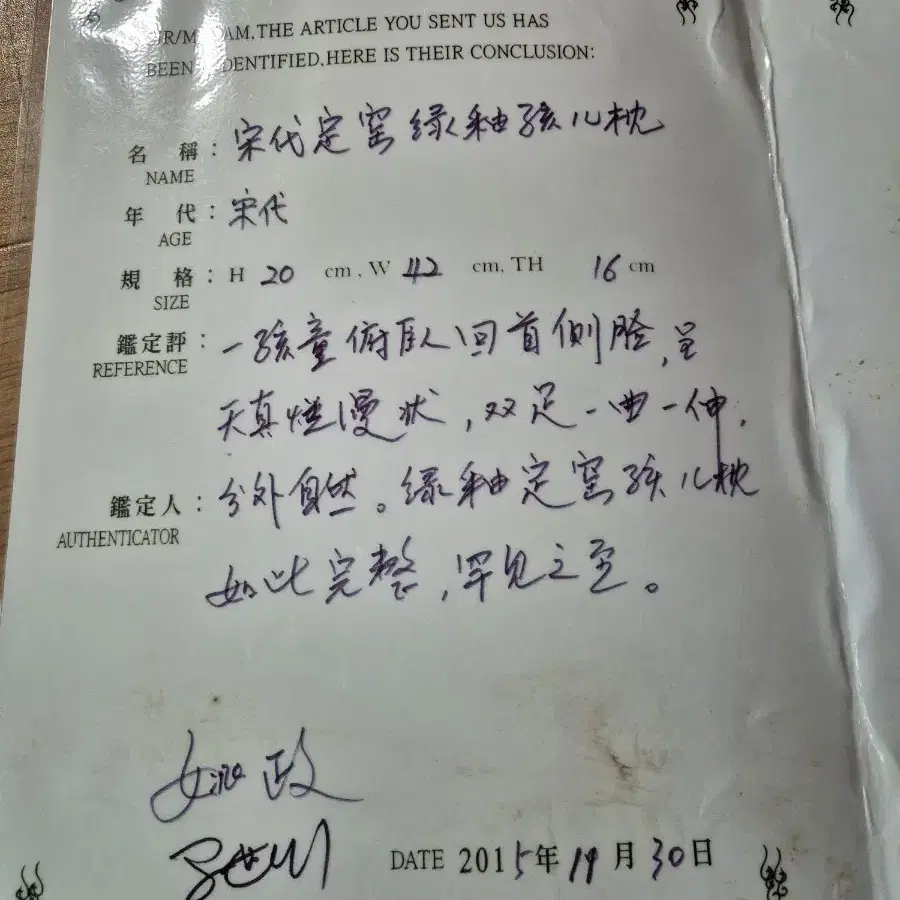 AM,THE ARTICLE YOU SENT US HAS
BEEN IDENTIFIED.HERE IS THEIR CONCLUSION:
名 稱：宋代定窑绿釉孩儿枕
NAME
年 代：宋代
AGE
規 格：H 20 cm , W 42 cm, TH 16 cm
SIZE
鑑定評：一孩童俯卧回首侧脸,呈
REFERENCE
天真烂漫状,双足一曲一伸,
鑑定人：分外自然。绿釉定窑孩儿枕
AUTHENTICATOR
如此完整,罕见之至。
政
DATE 2015年 月 30日